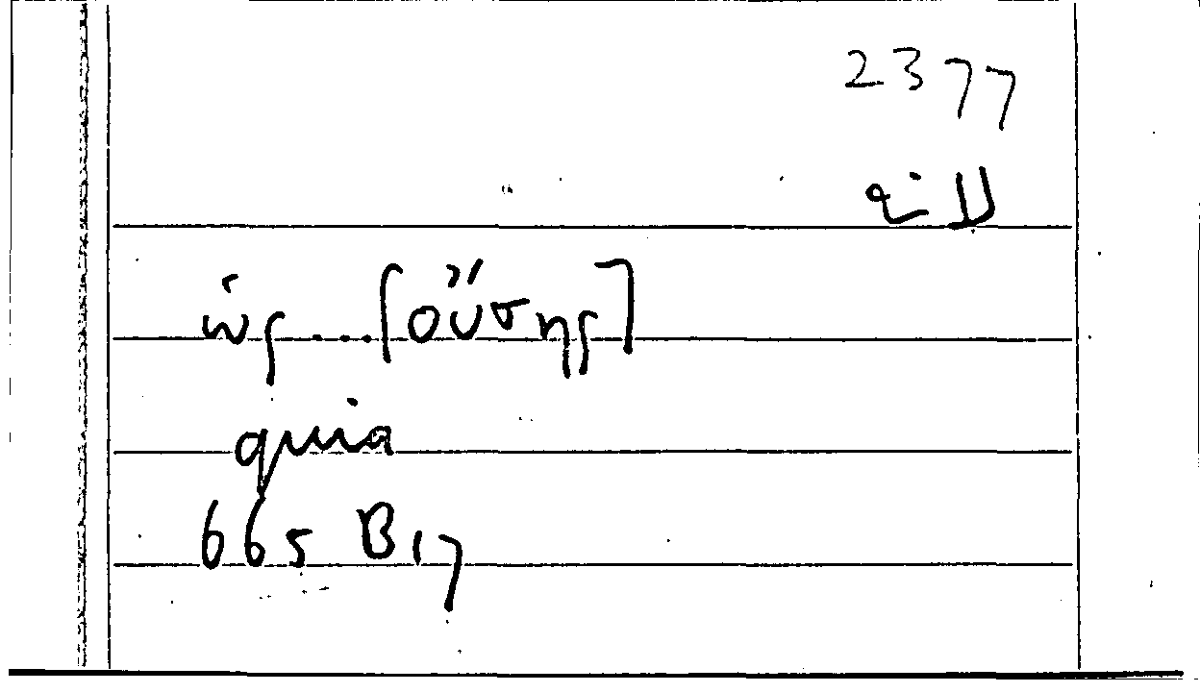 2377
ὡς ... [οὔσης]
quia
665 B17